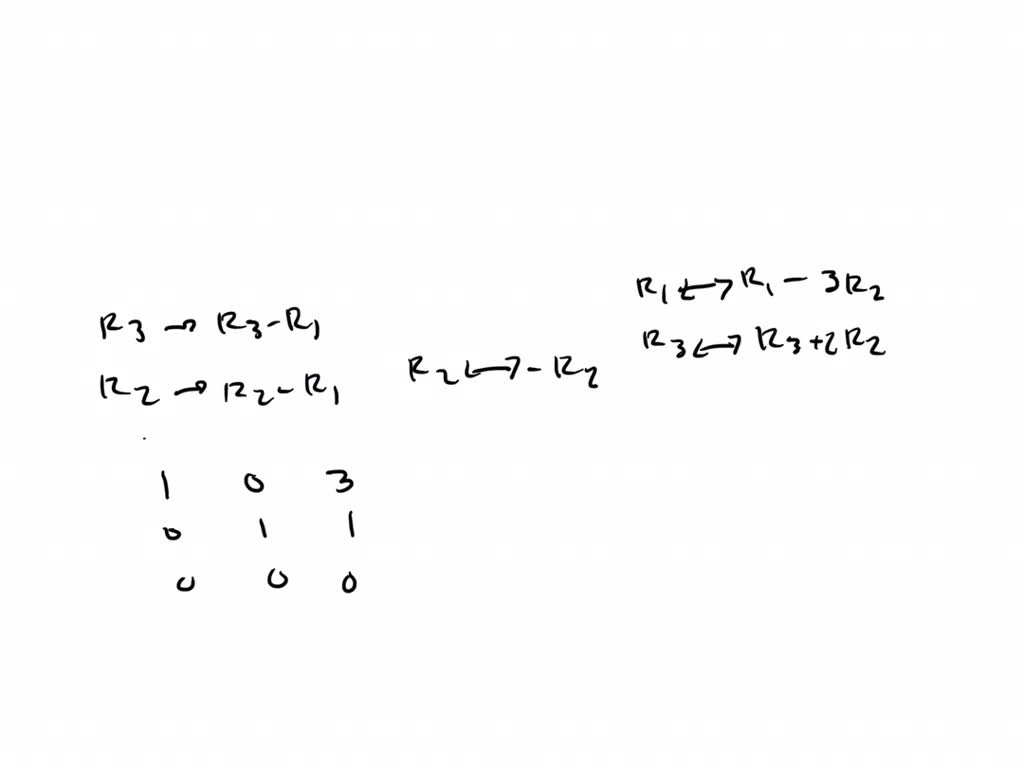 R₁ ⟷ R₁ - 3R₂
R₃ → R₃-R₁
R₃ ⟷ R₃+2R₂
R₂ → R₂-R₁
R₂ ⟷ -R₂
1 0 3
0 1 1
0 0 0